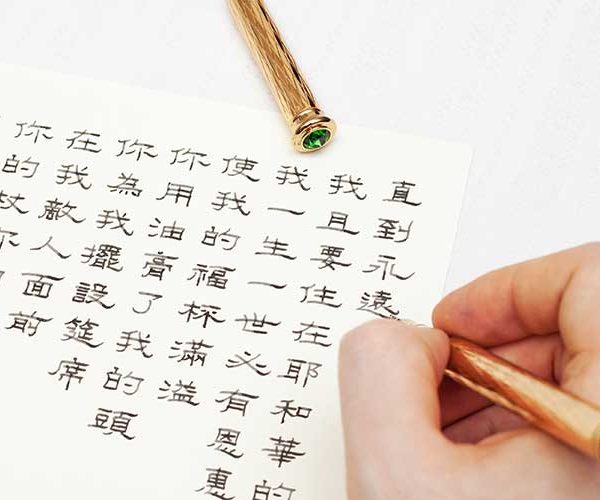 你的杖
在我敵人面前
你為我擺設筵席
你用油膏了我的頭
使我的福杯滿溢
我一生一世必有恩惠
我且要住在耶和華的
直到永遠